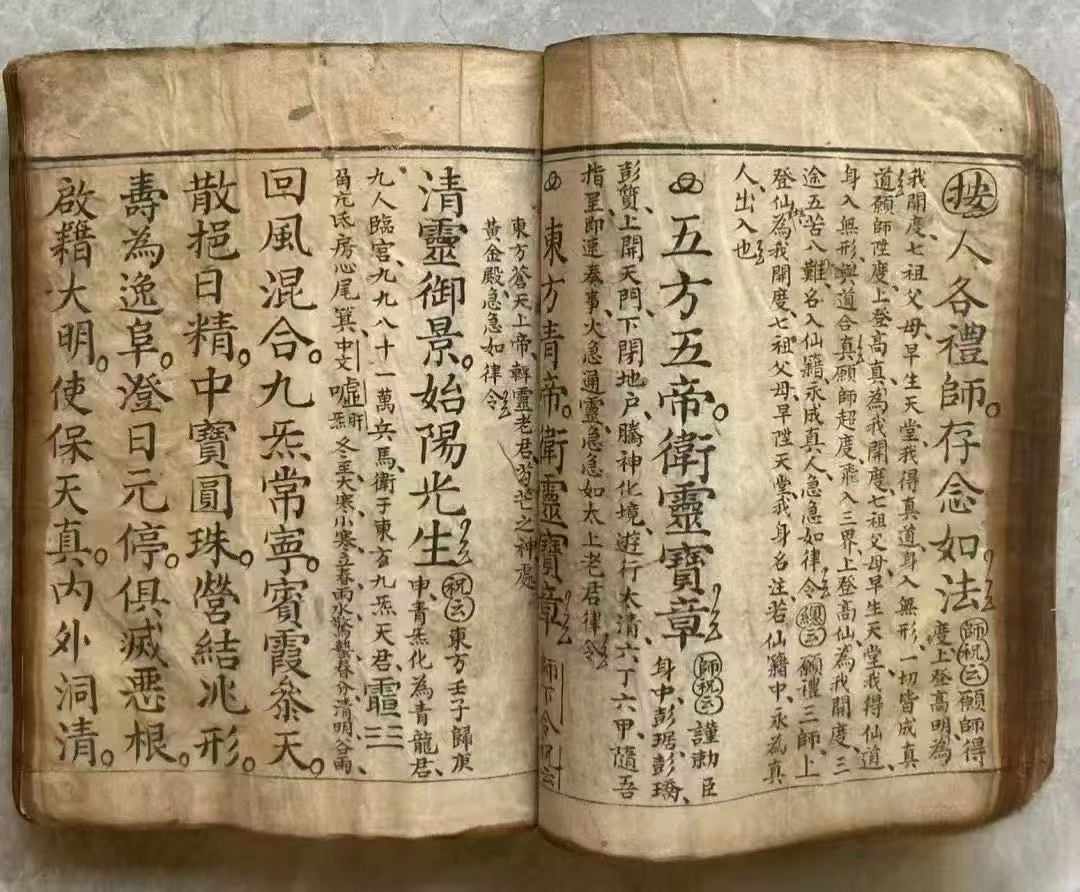 按人各禮師。存念如法
師祝云願師得度上登高明為
我開度七祖父母早生天堂我得真道身入無形一切皆成真
道願師陞度上登高真為我開度七祖父母早生天堂我得仙道
身入無形與道合真願師超度飛入三界上登高仙為我開度三
途五苦八難名入仙籍永成真人急急如律令總云願禮三師上
登仙為我開度七祖父母早陞天堂我身名注若仙籍中永為真
人出入也
五方五帝衛靈寶章
師祝云謹勅臣身中彭琚彭瓆
彭質上開天門下閉地户騰神化境遊行太清六丁六甲隨吾
指呈即速奏事火急通靈急急如太上老君律令
東方青帝。衛靈寶章
東方蒼天上帝靈老君芒之神處
黃金殿急急如律令
清靈御景。始陽光生
祝云東方壬子歸庚申青炁化為青龍君
九人臨宮九九八十一萬兵馬衛于東方九炁天君
角亢氐房心尾箕中文噓肝炁冬至大寒小寒立春雨水驚蟄春分清明谷雨
回風混合。九炁常寧。賓霞叅天。
散挹日精。中寶圓珠。營結兆形。
壽為逸阜。澄日元停。俱滅惡根。
啟籍大明。使保天真。內外洞清。